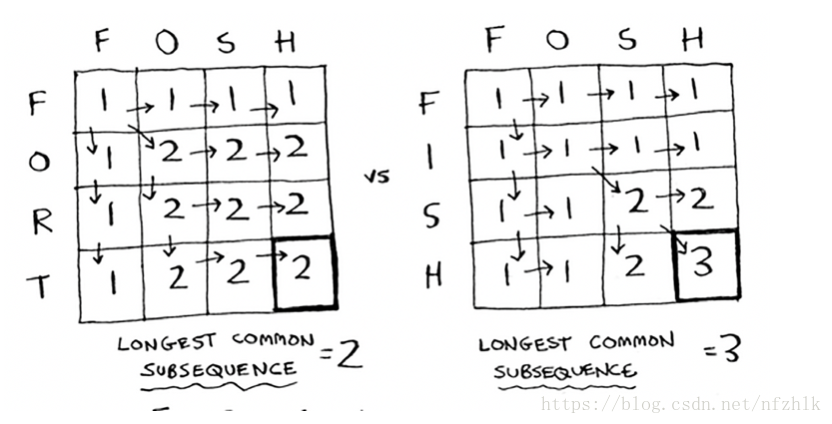 F O S H F O S H
F 1 1 1 1 F 1 1 1 1
O 1 2 2 2 vs I 1 1 1 1
R 1 2 2 2 S 1 1 2 2
T 1 2 2 2 H 1 1 2 3
LONGEST COMMON
SUBSEQUENCE = 2
LONGEST COMMON
SUBSEQUENCE = 3
https://blog.csdn.net/nfzhlk